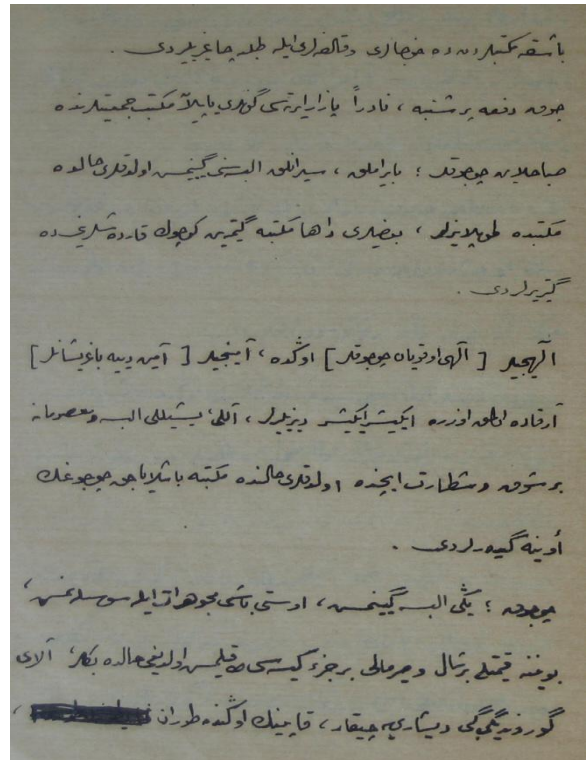 باشقه مكتبلردن ده خوجالرى وقالفه لرى ايله طلبه چاغريليردى .
چوق دفعه پرشنبه ، نادراً پازار ايرتسى گونلرى ياپيلان مكتب جمعيتلرنده
صباحلاين چوجوقلر ؛ بايراملق ، سيرانلق البسه سنى گيينمش اولدقلرى حالده
مكتبده طوپلانيرلر ، بعضيلرى داها مكتبه گيتمين كوچوك قارده شلرينى ده
گتيريرلردى .
الٓهيجيلر [ الٓهى اوقويان چوجوقلر ] اوڭده ، آمينجيلر [ آمين دييه باغريشانلر ]
آرقاده اولمق اوزره ايكيشر ايكيشر ديزيليرلر ، آللى يشيللى البسه ومعصومانه
بر شوق وشطارت ايچنده اولدقلرى حالده مكتبه باشلاياجق چوجوغك
أوينه گيده رلردى .
چوجوق ؛ يڭى البسه گيينمش ، اوستى باشى مجوهرات ايله سوسلنمش ،
بويننه قيمتلى بر شال وصرمالى بر جزء كيسه سى طاقيلمش اولديغى حالده بكلر ، آلاى
گوروندیگى گبى ديشارىيه چيقار ، قاپينك اوڭنده طوران